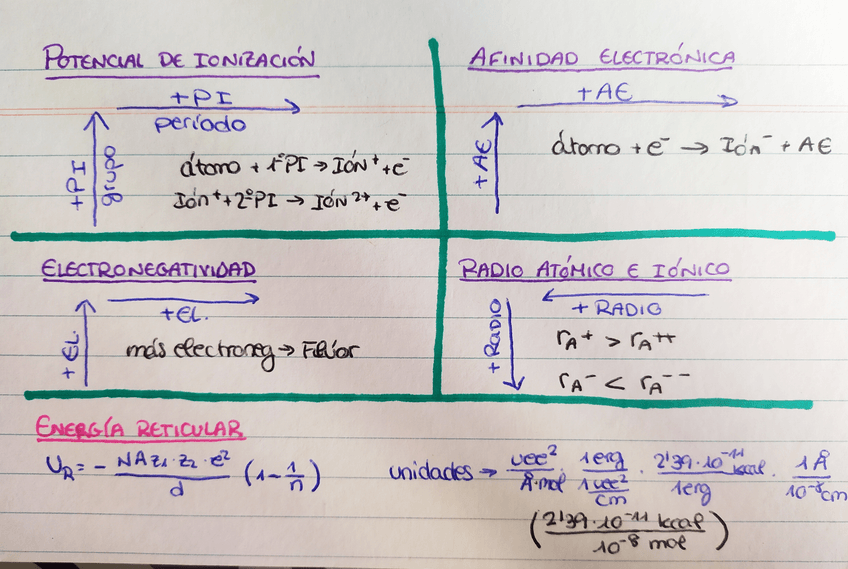 POTENCIAL DE IONIZACIÓN
+PI
período
+PI
grupo
átomo + 1ºPI → IÓN⁺ + e⁻
IÓn⁺ + 2ºPI → IÓN²⁺ + e⁻
AFINIDAD ELECTRÓNICA
+AE
+AE
átomo + e⁻ → IÓn⁻ + AE
ELECTRONEGATIVIDAD
+EL.
+EL.
más electroneg → Flúor
RADIO ATÓMICO E IÓNICO
+ RADIO
+ RADIO
rA⁺ > rA⁺⁺
rA⁻ < rA⁻⁻
ENERGÍA RETICULAR
U_R = - NAZ₁·Z₂·e² / d (1 - 1/n)
unidades → uee² / Å·mol · 1erg / (1uee² / cm) · 2'39·10⁻¹¹ kcal / 1erg · 1Å / 10⁻⁸cm
(2'39·10⁻¹¹ kcal / 10⁻⁸ mol)